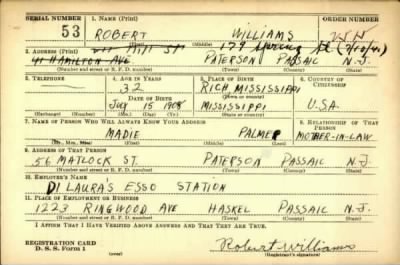 SERIAL NUMBER 1. NAME (Print) ORDER NUMBER
53 ROBERT WILLIAMS
(First) (Middle) (Last)
179 Spring St (7/10/41)
2. ADDRESS (Print)
41 HAMILTON AVE PATERSON PASSAIC N.J.
(Number and street or R. F. D. number) (Town) (County) (State)
3. TELEPHONE 4. AGE IN YEARS 5. PLACE OF BIRTH 6. COUNTRY OF CITIZENSHIP
32 RICH, MISSISSIPPI
DATE OF BIRTH (Town or county)
JULY 15 1908 MISSISSIPPI U.S.A.
(Exchange) (Number) (Mo.) (Day) (Yr.) (State or country)
7. NAME OF PERSON WHO WILL ALWAYS KNOW YOUR ADDRESS 8. RELATIONSHIP OF THAT PERSON
MADIE PALMER MOTHER-IN-LAW
(Mr., Mrs., Miss) (First) (Middle) (Last)
9. ADDRESS OF THAT PERSON
56 MATLOCK ST. PATERSON PASSAIC N.J.
(Number and street or R. F. D. number) (Town) (County) (State)
10. EMPLOYER'S NAME
DI LAURAS ESSO STATION
11. PLACE OF EMPLOYMENT OR BUSINESS
1223 RINGWOOD AVE HASKEL PASSAIC N.J.
(Number and street or R. F. D. number) (Town) (County) (State)
I AFFIRM THAT I HAVE VERIFIED ABOVE ANSWERS AND THAT THEY ARE TRUE.
REGISTRATION CARD
D. S. S. Form 1 Robert Williams
(Registrant's signature)